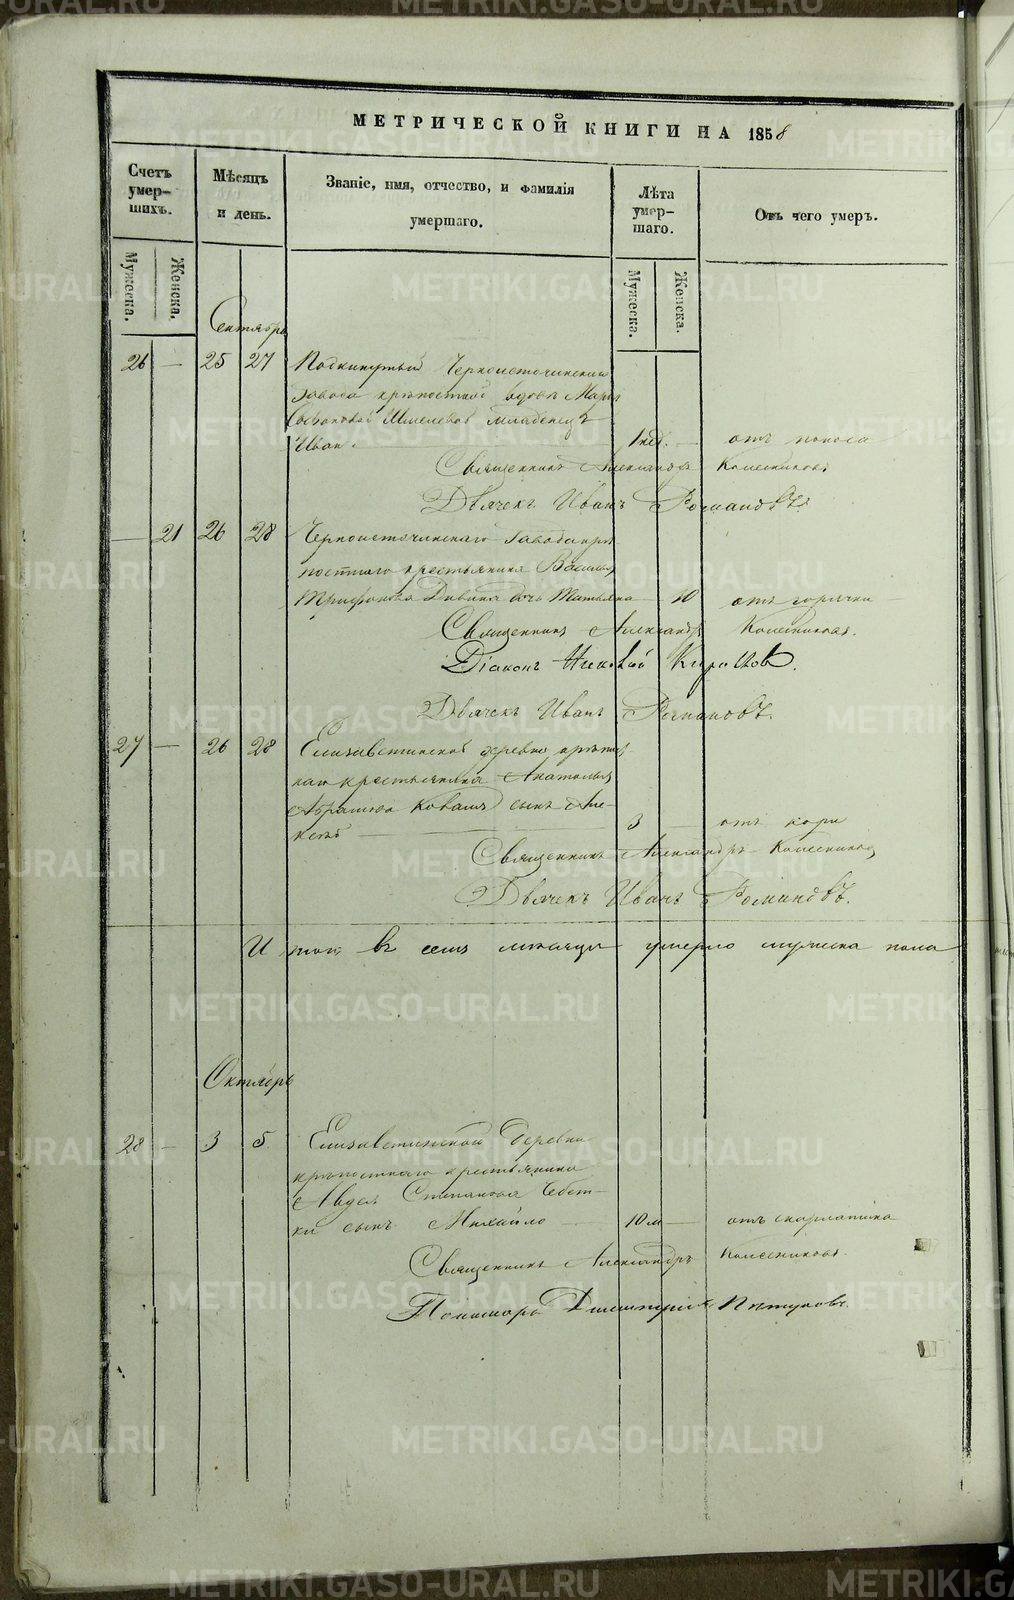 МЕТРИЧЕСКОЙ КНИГИ НА 1858
Счетъ умер-шихъ.
Мѣсяцъ и день.
Званіе, имя, отчество, и фамилія умершаго.
Лѣта умер-шаго.
Отъ чего умеръ.
Мужеска.
Женска.
Мужеска.
Женска.
Сентябрь
26 — 25 27 Подкинутый Черноисточинскаго
завода крѣпостной вдовѣ Марьѣ
младенецъ
Иванъ. 1 нед. — отъ поноса
Священникъ Александръ Колесниковъ
Дьячекъ Иванъ Романовъ
— 21 26 28 Черноисточинскаго завода крѣ
постнаго крестьянина Василья
Трифонова дочь Татьяна — 10 отъ горячки
Священникъ Александръ Колесниковъ.
Діаконъ Николай
Дьячекъ Иванъ Романовъ.
27 — 26 28 Елизаветинской деревни крѣпост
наго крестьянина Анатолья
Абрамова Коваля сынъ Але-
ксѣй 3 — отъ кори
Священникъ Александръ Колесниковъ
Дьячекъ Иванъ Романовъ.
И того въ семъ мѣсяцѣ умерло мужеска пола
Октябрь
28 — 3 5 Елизаветинской деревни
крѣпостнаго крестьянина
Авдея Степанова
сынъ Михайло 10 м — отъ скарлатина
Священникъ Александръ Колесниковъ.
Пономарь Димитрій Пѣтуховъ.
METRIKI.GASO-URAL.RU